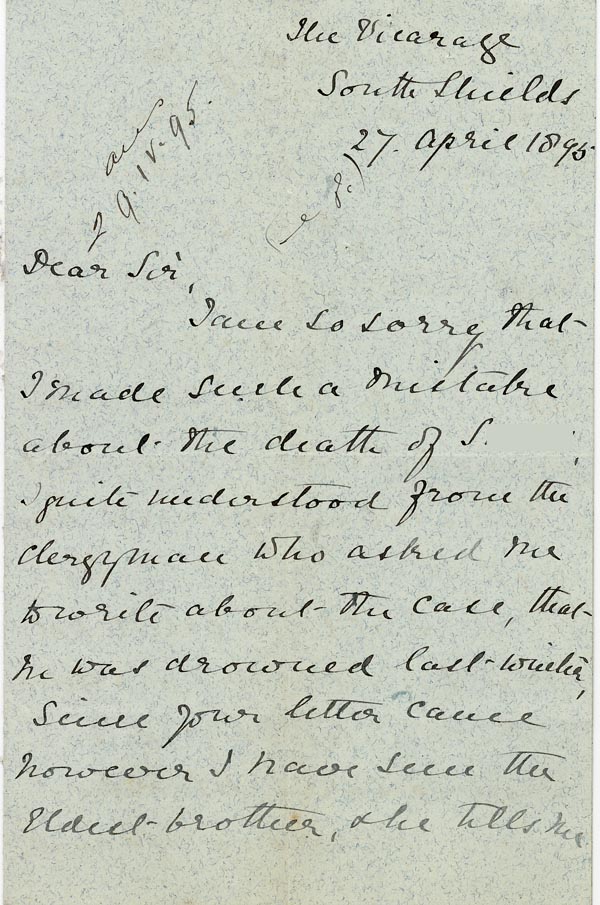 The Vicarage
South Shields
27. April 1895
ans
29.IV.95.
Dear Sir,
I am so sorry that
I made such a mistake
about the death of S.
I quite understood from the
clergyman who asked me
to write about the case, that
he was drowned last winter,
Since your letter came
however I have seen the
Eldest brother, & he tells me